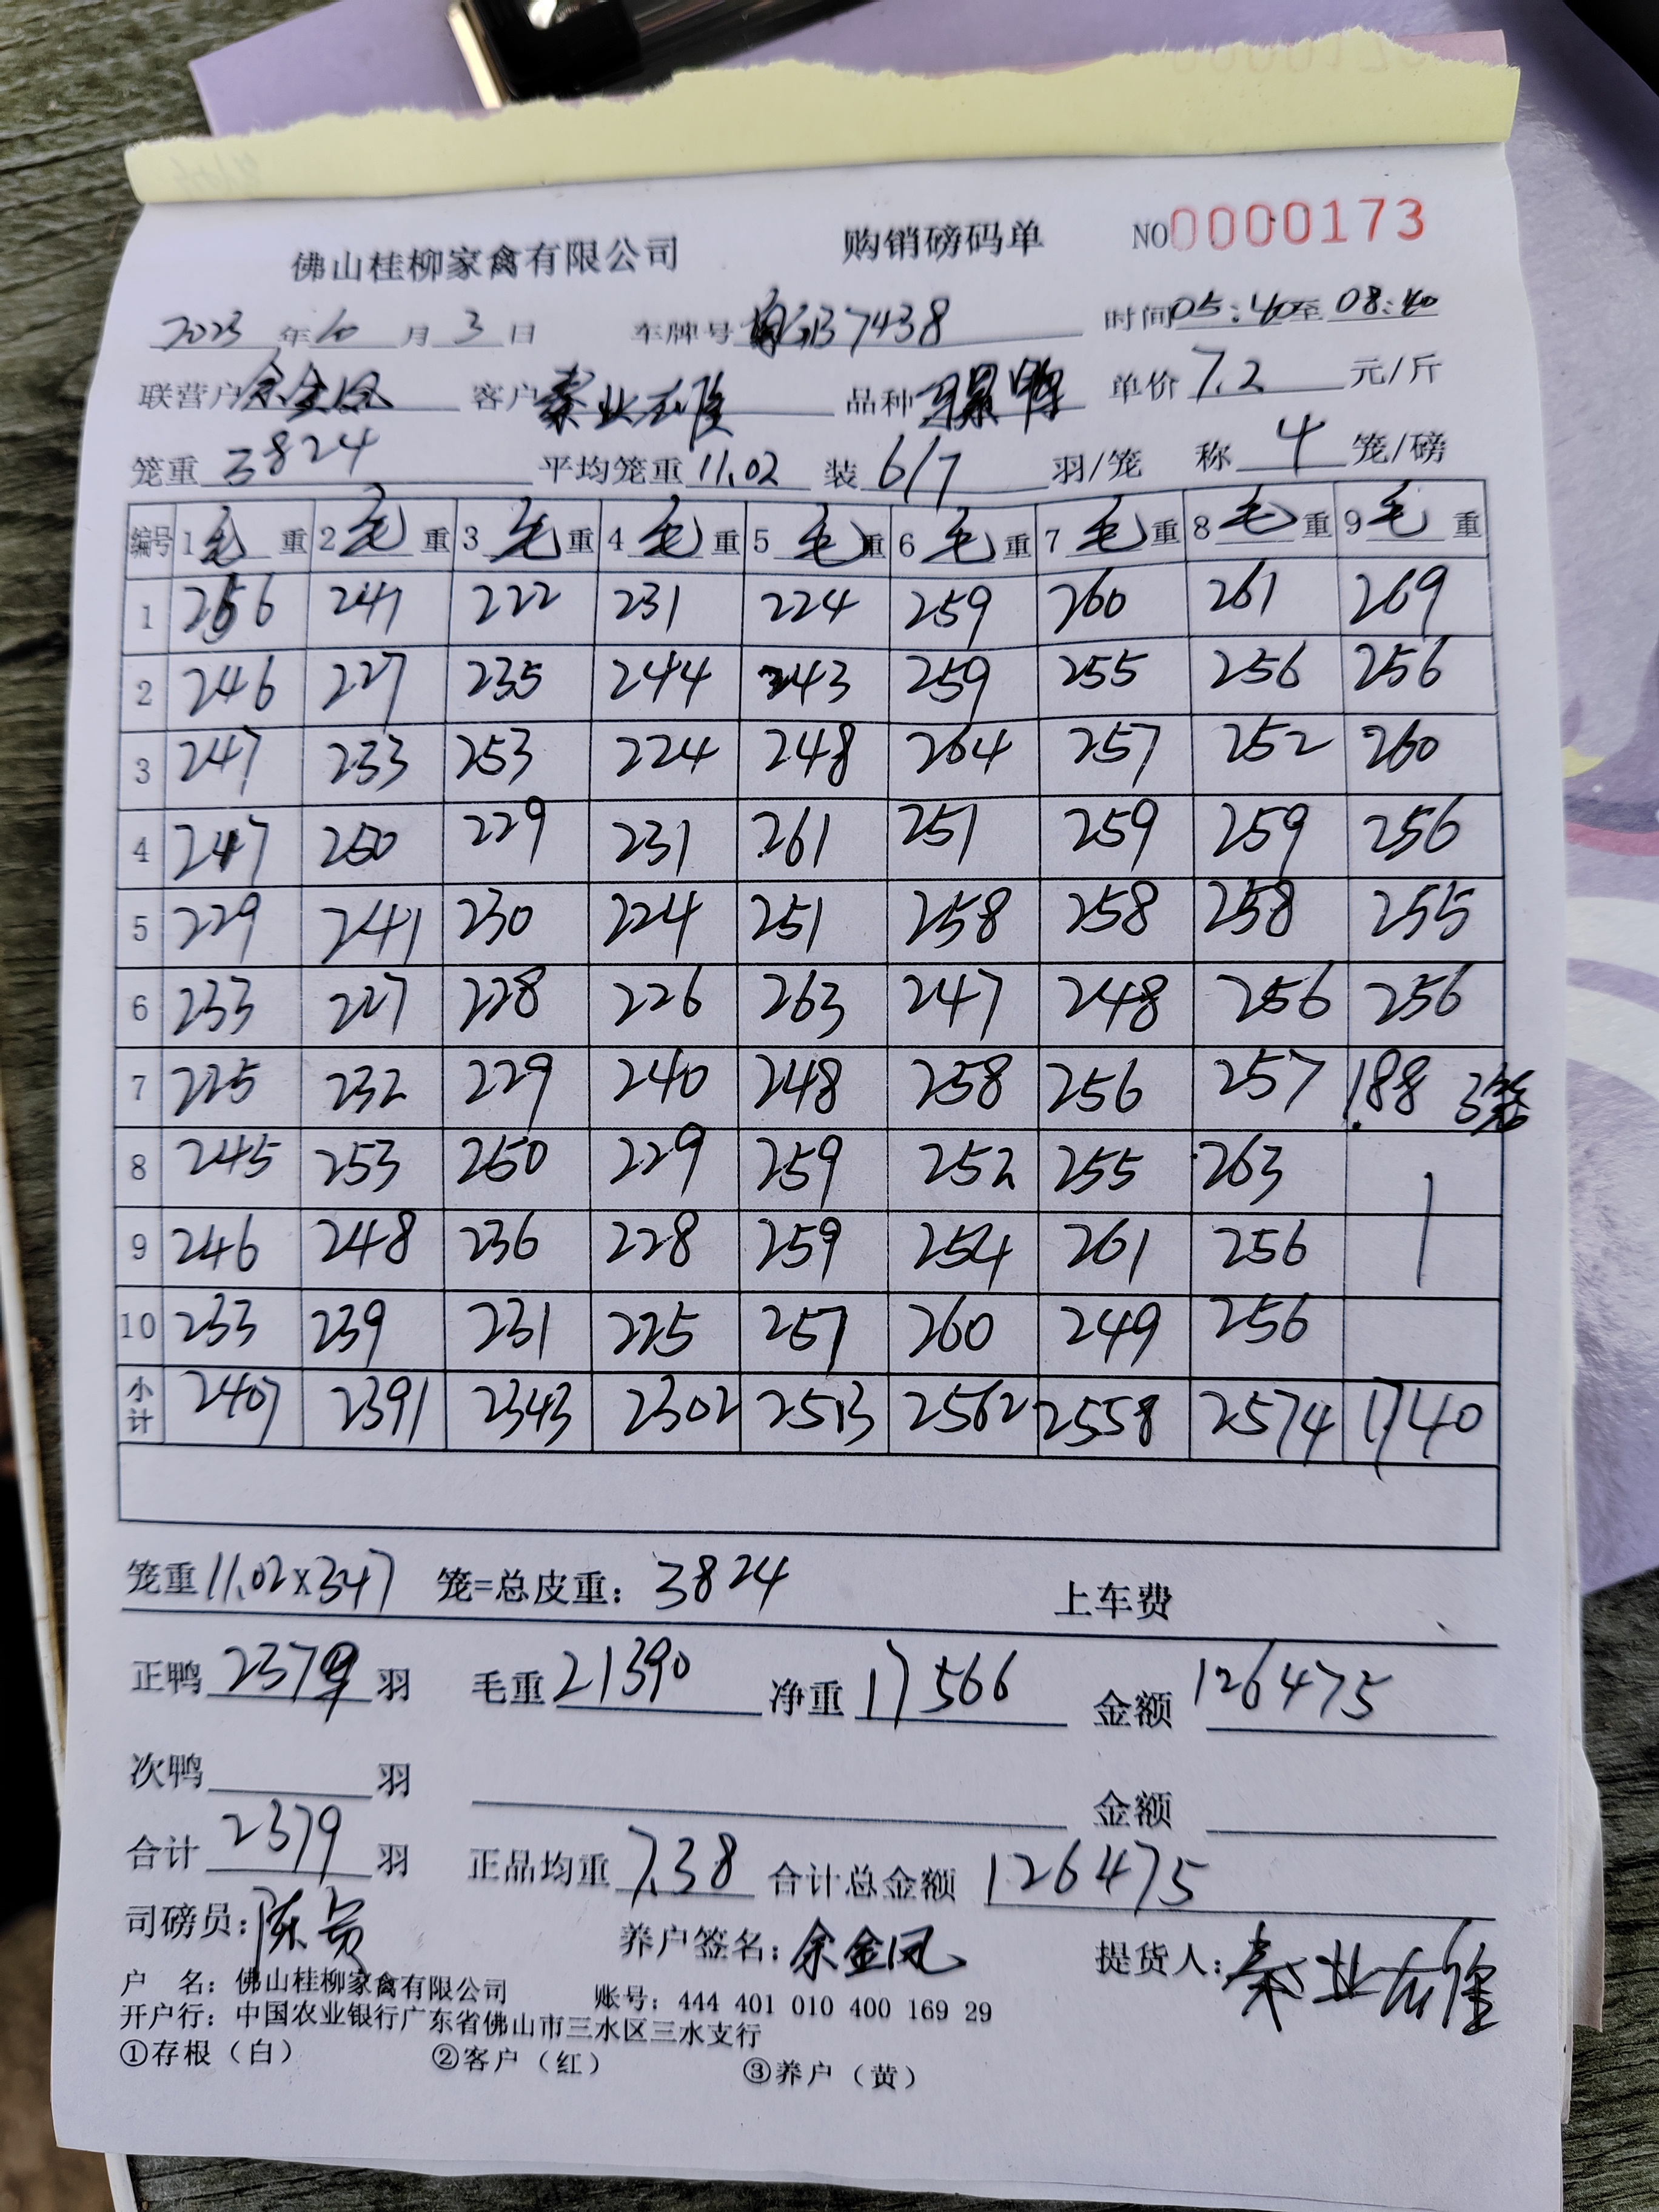 佛山桂柳家禽有限公司 购销磅码单 NO0000173
2023年10月3日 车牌号 B37438 时间05:40至08:40
联营户余金凤 客户秦业雄 品种 单价7.2元/斤
笼重3824 平均笼重11.02 装6/7羽/笼 称4笼/磅
编号 1毛重 2毛重 3毛重 4毛重 5毛重 6毛重 7毛重 8毛重 9毛重
1 256 241 222 231 224 259 260 261 269
2 246 227 235 244 243 259 255 256 256
3 247 233 253 224 248 264 257 252 260
4 247 250 229 231 261 251 259 259 256
5 229 241 230 224 251 258 258 258 255
6 233 227 228 226 263 247 248 256 256
7 225 232 229 240 248 258 256 257 188 3笼
8 245 253 250 229 259 252 255 263
9 246 248 236 228 259 254 261 256
10 233 239 231 225 257 260 249 256
小计 2407 2391 2343 2302 2513 2562 2558 2574 1740
笼重11.02x347 笼=总皮重: 3824 上车费
正鸭2379羽 毛重21390 净重17566 金额126475
次鸭 羽 金额
合计2379羽 正品均重7.38 合计总金额126475
司磅员:陈 养户签名:余金凤 提货人:秦业雄
户 名: 佛山桂柳家禽有限公司 账号: 444 401 010 400 169 29
开户行: 中国农业银行广东省佛山市三水区三水支行
①存根（白） ②客户（红） ③养户（黄）